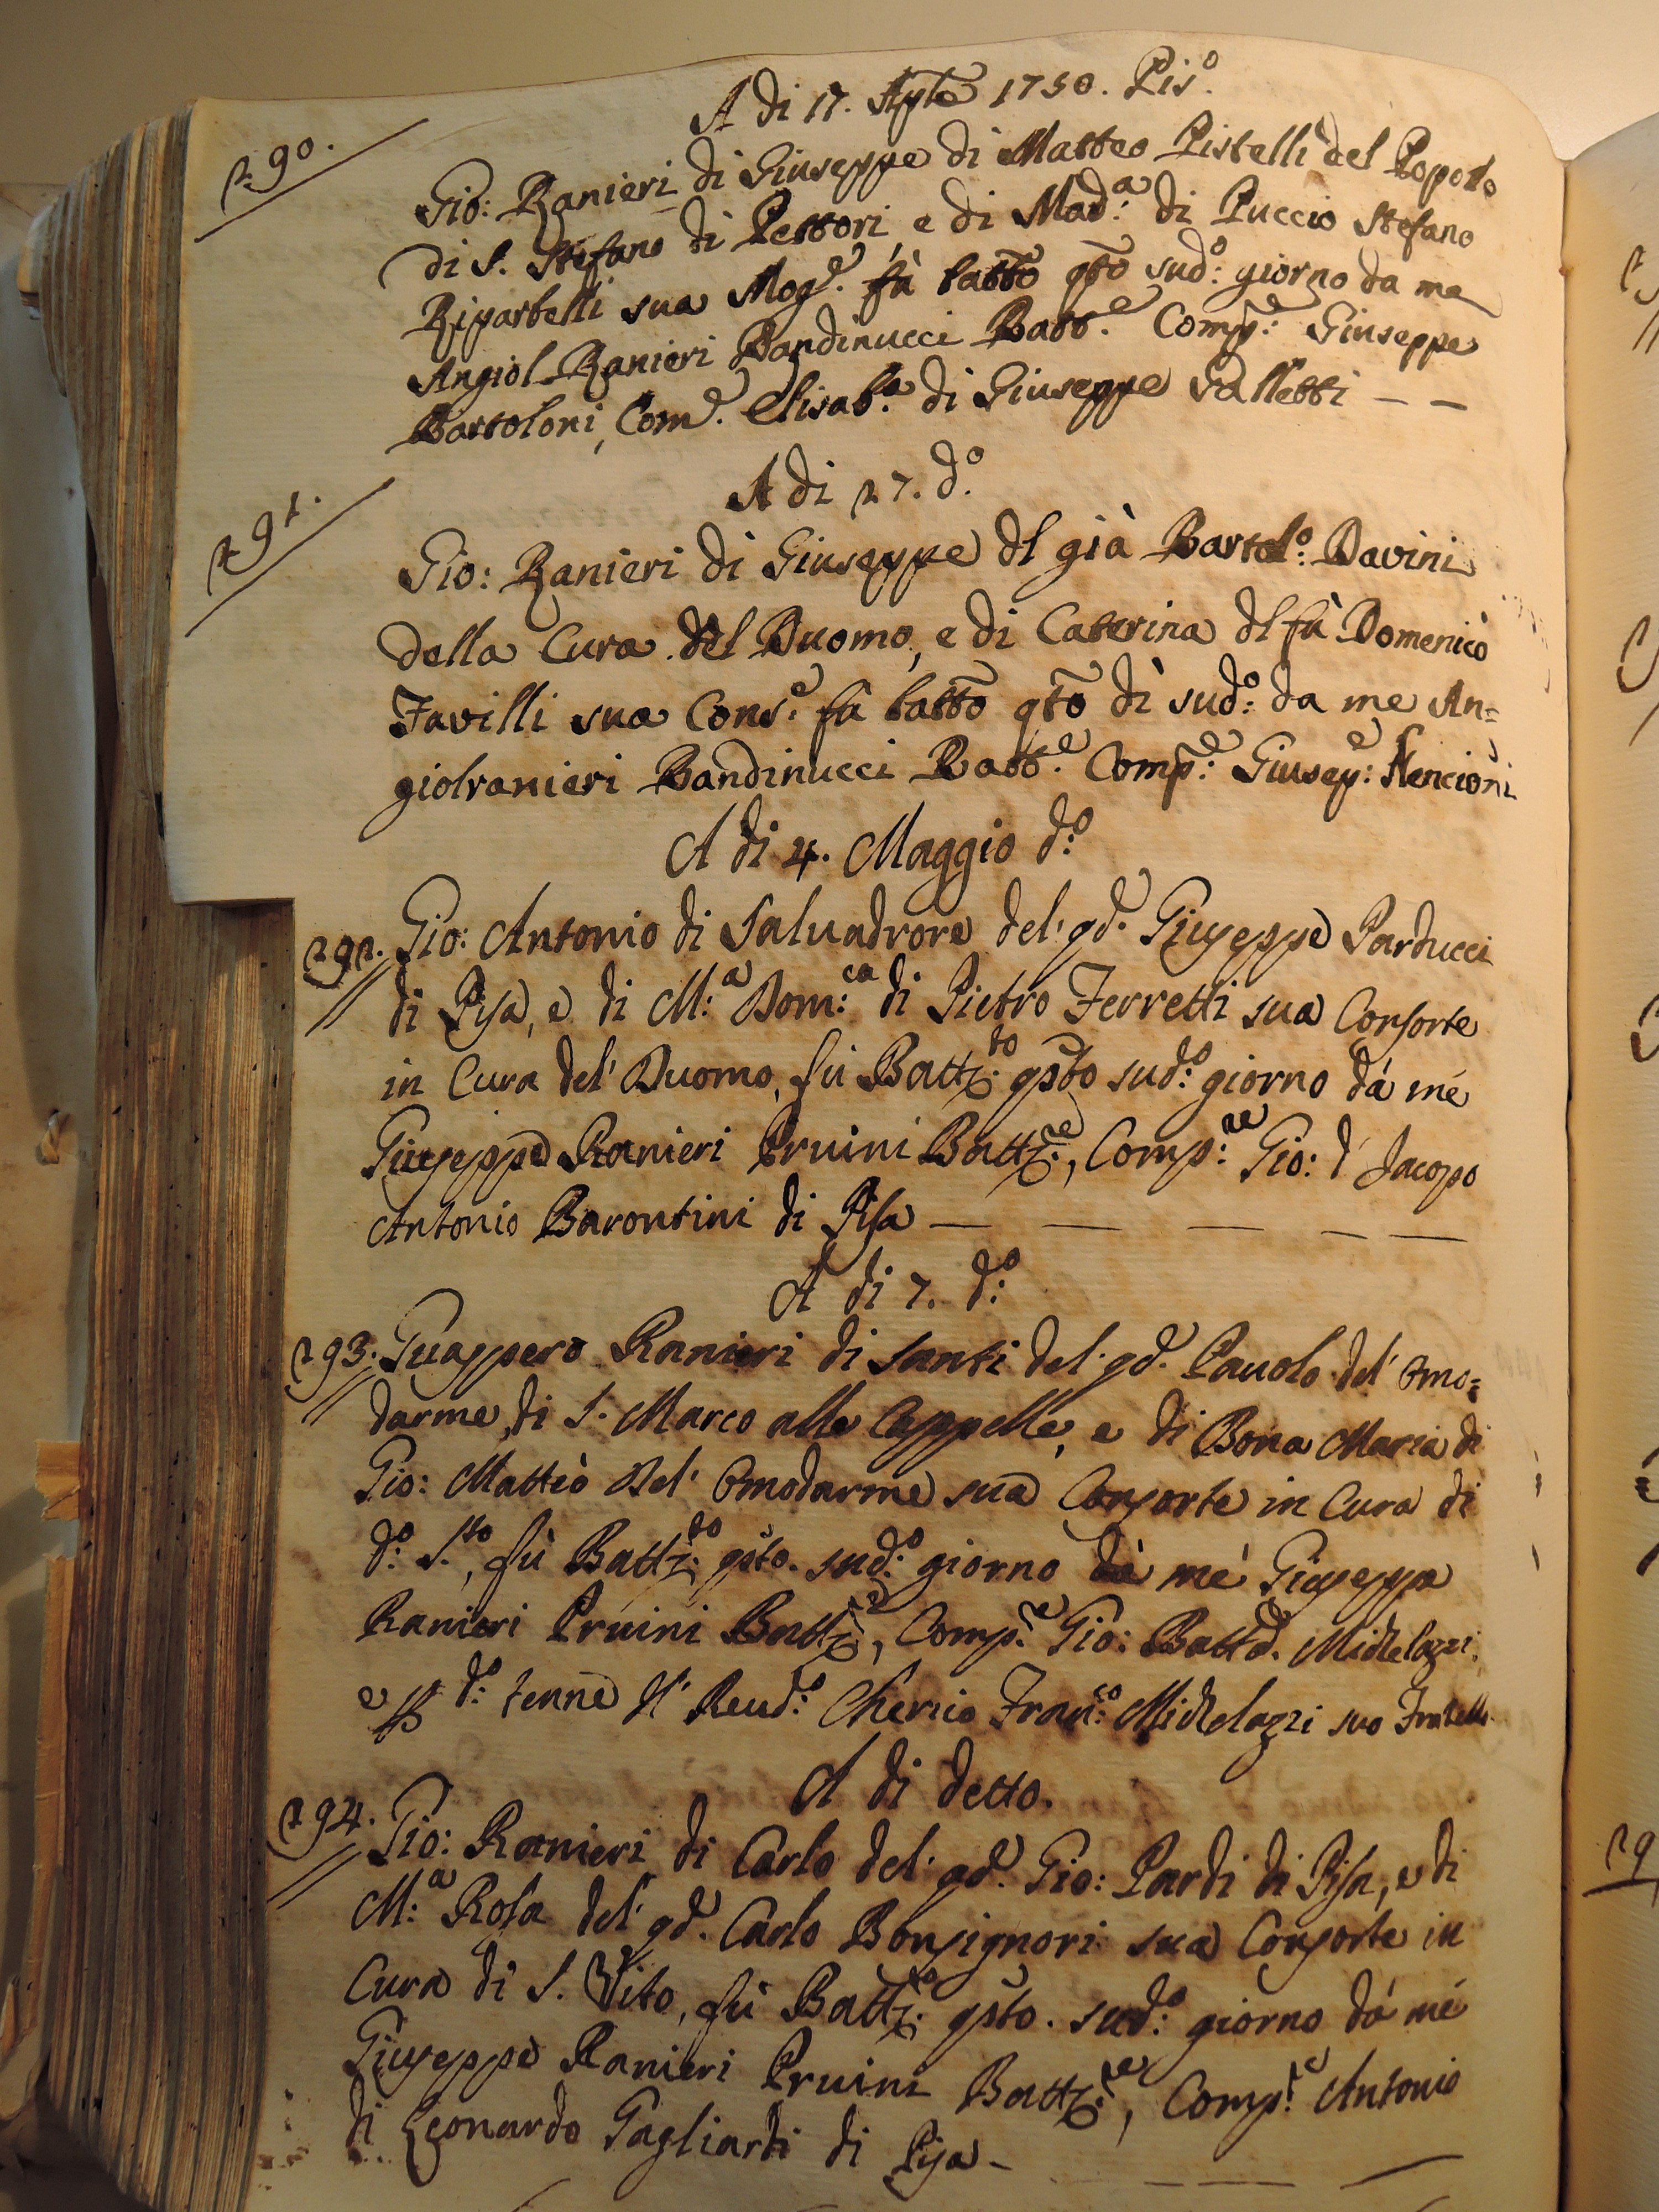 A di 17. Aple 1750. Pis.o
290.
Gio: Ranieri di Giuseppe di Matteo Pistelli del Popolo
di S. Stefano di Pettori e di Mad.a di Puccio Stefano
Riparbelli sua Mog.e fù batto qto sud.o giorno da me
Angiol Ranieri Bandinucci Batt.e Comp.e Giuseppe
Bartoloni, Com.e Elisab.a di Giuseppe Galletti – –
A di 27. d.o
291.
Gio: Ranieri di Giuseppe dl già Bartol.o Davini
della Cura del Duomo, e di Caterina dl fù Domenico
Favilli sua Cons.e fù batto qto dì sud.o da me An=
giolranieri Bandinucci Batt.e Comp.e Giusep.e Nencioni
A di 4. Maggio d.o
292. Gio: Antonio di Saluadrore del' qd. Giuseppe Parducci
di Pisa, e di M.a Dom.ca di Pietro Ferretti sua Consorte
in Cura del' Duomo, fù Battz.to qsto sud.o giorno dà mé
Giuseppe Ranieri Pruini Battz.re, Comp.re Gio: d' Jacopo
Antonio Barontini di Pisa — — — — —
A di 7. d.o
293. Guaspero Ranieri di Santi del' qd. Pauolo del' Omo=
darme, di S. Marco alle Cappelle, e di Bona Maria di
Gio: Matteo Del' Omodarme sua Consorte in Cura di
d.o S.to, fù Battz.to qsto. sud.o giorno dà mé Giuseppe
Ranieri Pruini Battz.re, Comp.re Gio: Batta. Michelazzi,
e p d.o tenne Il' Reud.o Cherico Fran.co Michelazzi suo Fratello
A di detto.
294. Gio: Ranieri di Carlo del' qd. Gio: Pardi di Pisa, e di
M.a Rosa del' qd. Carlo Bonsignori sua Consorte in
Cura di S. Vito, fù Battz.to qsto. sud.o giorno dà mé
Giuseppe Ranieri Pruini Battz.re, Comp.re Antonio
di Leonardo Gagliardi di Pisa – — — —
29